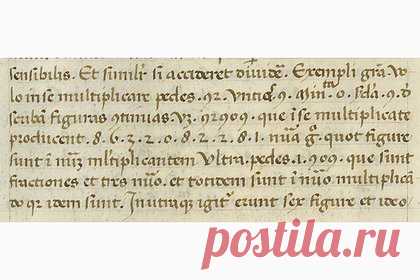 sensibilis. Et similr̃ si accideret diuidẽ. Exempli gr̃a. Vo
lo in se multiplicare pedes. 92. Vntie
scribã figuras 9tinuas vz. 92909. que ĩ se multiplicate
producent. 8. 6. 3. 2. 0. 8. 2. 2. 8. 1. nũa g̃. quot figure
sunt ĩ nũ mltiplicantem Vltra. pedes. 1. 909. que sunt
fractiones et tres nũo. et totidem sunt ĩ nũo multiplicã
do qr idem sunt. In utraqz igit̃ erunt sex figure et ideo
postila.ru